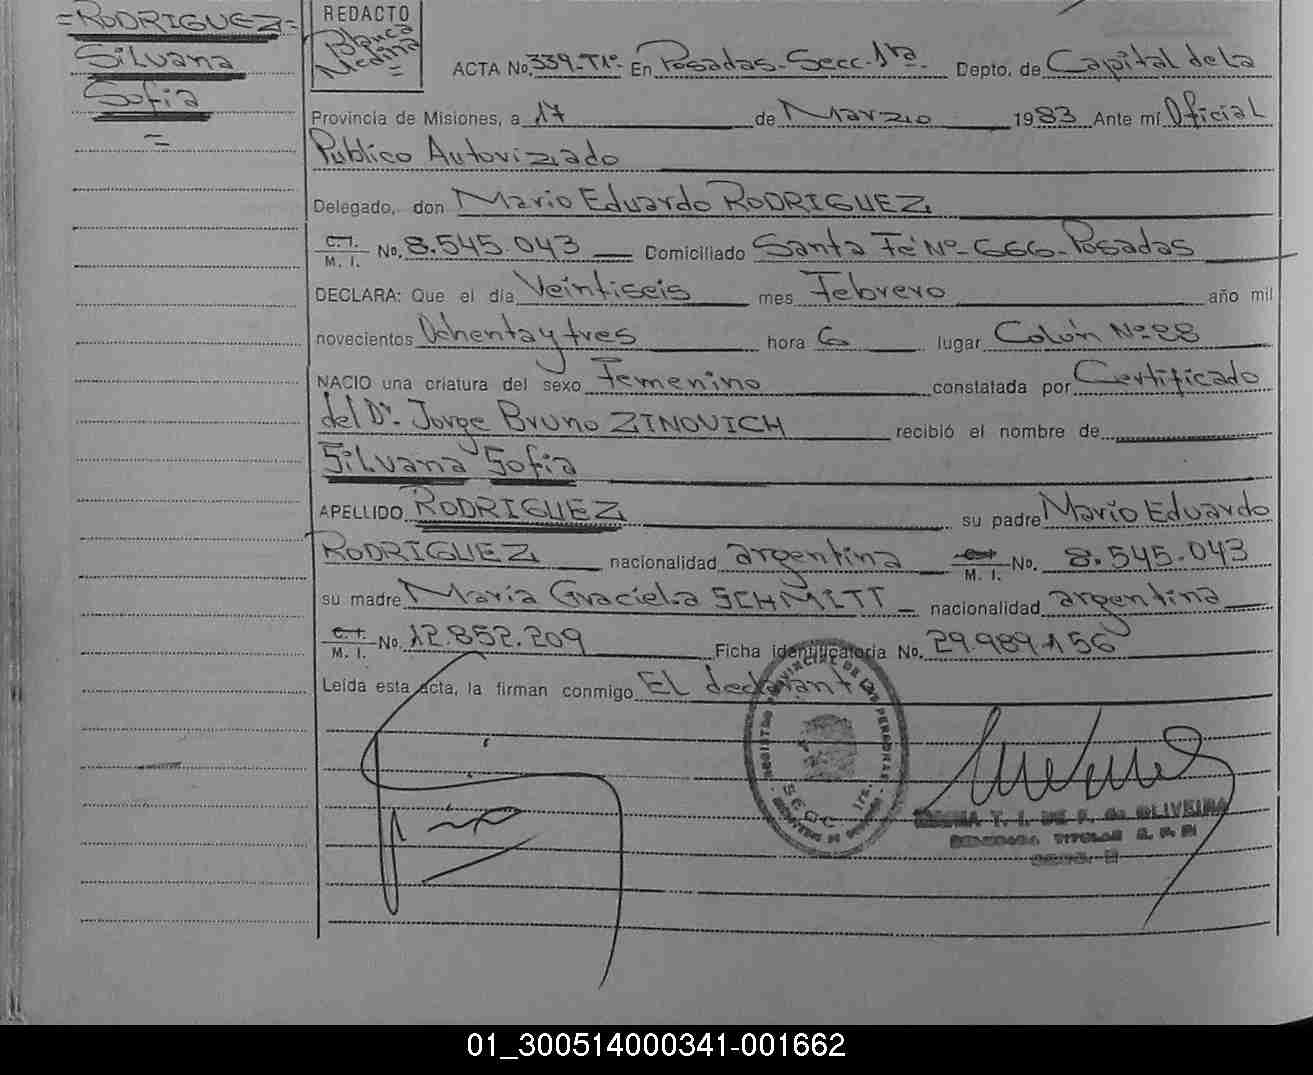 =RODRIGUEZ=
Silvana
Sofia
=
REDACTO
Blanca
Medina
=
ACTA No. 339-T1º- En Posadas-Secc-1ra- Depto. de Capital de La
Provincia de Misiones, a 17 de Marzo 1983 Ante mí Oficial
Público Autorizado
Delegado, don Mario Eduardo RODRIGUEZ
C. I.
M. I. No. 8.545.043 Domiciliado Santa Fé Nº-666-Posadas
DECLARA: Que el día Veintiseis mes Febrero año mil
novecientos Ochenta y tres hora 6 lugar Colón Nº-88
NACIO una criatura del sexo Femenino constatada por Certificado
del Dr. Jorge Bruno ZINOVICH recibió el nombre de
Silvana Sofia
APELLIDO RODRIGUEZ su padre Mario Eduardo
RODRIGUEZ nacionalidad argentina M. I. No. 8.545.043
su madre María Graciela SCHMITT nacionalidad argentina
C. I.
M. I. No. 12.852.209 Ficha identificatoria No. 29.989.156
Leída esta acta, la firman conmigo EL declarante
REGISTRO PROVINCIAL DE LAS PERSONAS
SECC. 1ra.
T. I. DE F. de OLIVEIRA
TITULAR
01_300514000341-001662